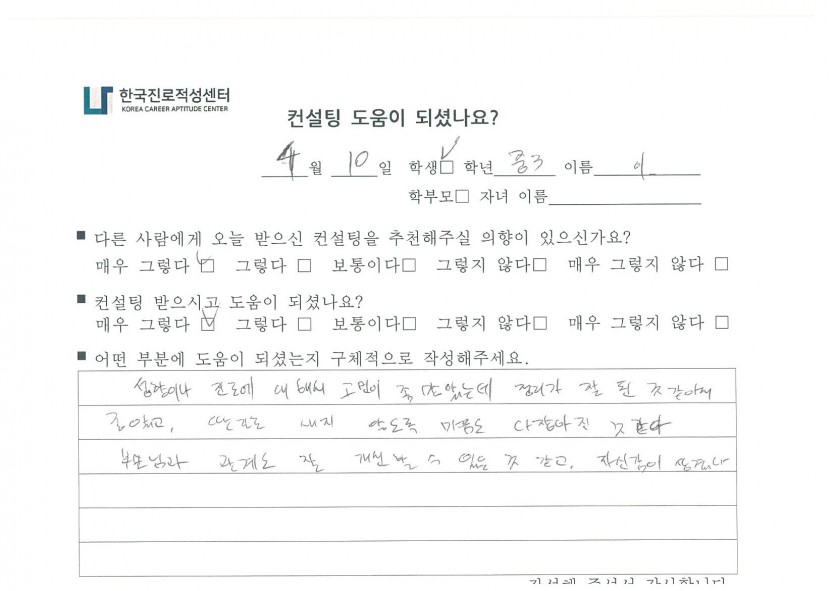 한국진로적성센터
KOREA CAREER APTITUDE CENTER
컨설팅 도움이 되셨나요?
4월 10일 학생☑ 학년 중3 이름 이
학부모□ 자녀 이름
■ 다른 사람에게 오늘 받으신 컨설팅을 추천해주실 의향이 있으신가요?
매우 그렇다 ☑ 그렇다 □ 보통이다□ 그렇지 않다□ 매우 그렇지 않다 □
■ 컨설팅 받으시고 도움이 되셨나요?
매우 그렇다 ☑ 그렇다 □ 보통이다□ 그렇지 않다□ 매우 그렇지 않다 □
■ 어떤 부분에 도움이 되셨는지 구체적으로 작성해주세요.
성향이나 진로에 대해서 고민이 좀 많았는데 정리가 잘 된 것 같아서
좋았고, 딴길로 새지 않도록 마음도 다잡아진 것 같다
부모님과 관계도 잘 개선 될 수 있을 것 같고, 자신감이 생겼다